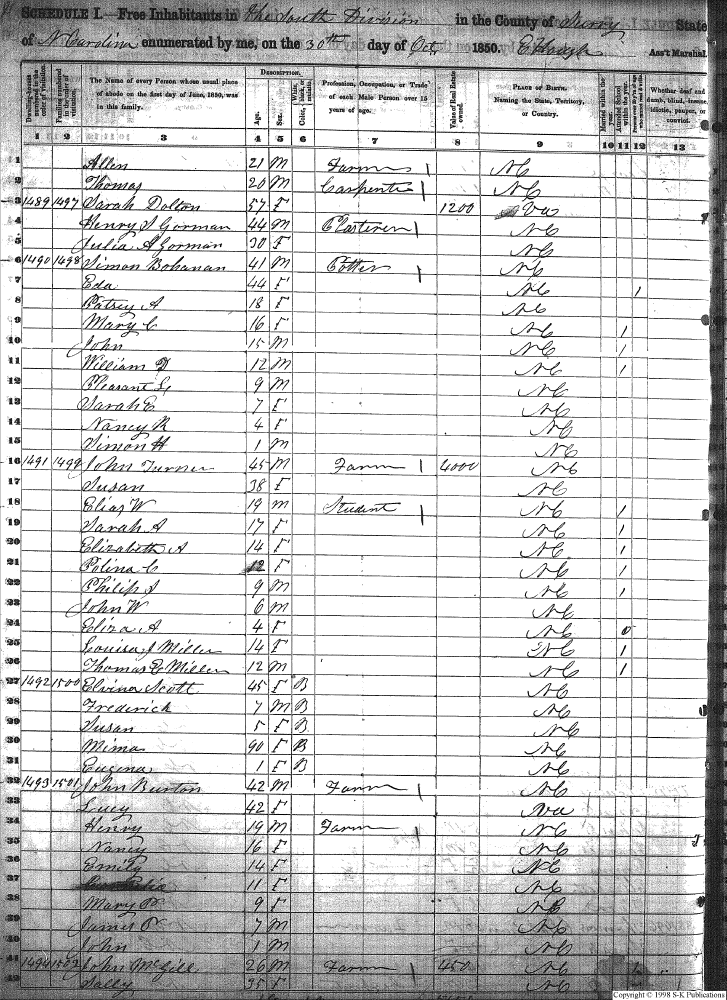 SCHEDULE I.—Free Inhabitants in the South Division in the County of Surry State
of N Carolina enumerated by me, on the 30th day of Oct 1850. Ass't Marshal.
Dwelling-houses numbered in the order of visitation.
Families numbered in the order of visitation.
The Name of every Person whose usual place of abode on the first day of June, 1850, was in this family.
DESCRIPTION.
Age.
Sex.
Color, White, black, or mulatto.
Profession, Occupation, or Trade of each Male Person over 15 years of age.
Value of Real Estate owned.
PLACE OF BIRTH. Naming the State, Territory, or Country.
Married within the year.
Attended School within the year.
Whether deaf and dumb, blind, insane, idiotic, pauper, or convict.
1 2 3 4 5 6 7 8 9 10 11 12 13
1 Allen 21 M Farmer 1 NC
2 Thomas 20 M Carpenter 1 NC
3 1489 1497 Sarah Dolton 57 F 1200 Va
4 Henry S Gorman 44 M Plasterer 1 NC
5 Julia A Gorman 30 F NC
6 1490 1498 Simon Bohanan 41 M Potter 1 NC
7 Eda 44 F NC 1
8 Patsey A 18 F NC
9 Mary C 16 F NC 1
10 John 15 M NC 1
11 William D 12 M NC 1
12 Pleasant G 9 M NC
13 Sarah E 7 F NC
14 Nancy R 4 F NC
15 Simon H 1 M NC
16 1491 1499 John Turner 45 M Farmer 1 4000 NC
17 Susan 38 F NC
18 Elias W 19 M Student 1 NC 1
19 Sarah A 17 F NC 1
20 Elizabeth A 14 F NC 1
21 Polina C 12 F NC 1
22 Philip S 9 M NC 1
23 John W 6 M NC
24 Eliza A 4 F NC 0
25 Louisa J Miller 14 F NC 1
26 Thomas E Miller 12 M NC 1
27 1492 1500 Elvina Scott 45 F B NC
28 Frederick 7 M B NC
29 Susan 5 F B NC
30 Mima 90 F B NC
31 Eugena 1 F B NC
32 1493 1501 John Burton 42 M Farmer 1 NC
33 Lucy 42 F Va
34 Henry 19 M Farmer 1 NC
35 Nancy 16 F NC
36 Emily 14 F NC
37 11 F NC
38 Mary P 9 F NC
39 James P 7 M NC
40 John 1 M NC
41 1494 1502 John McGill 26 M Farmer 1 450 NC
42 Sally 25 F NC
Copyright © 1998 S-K Publications